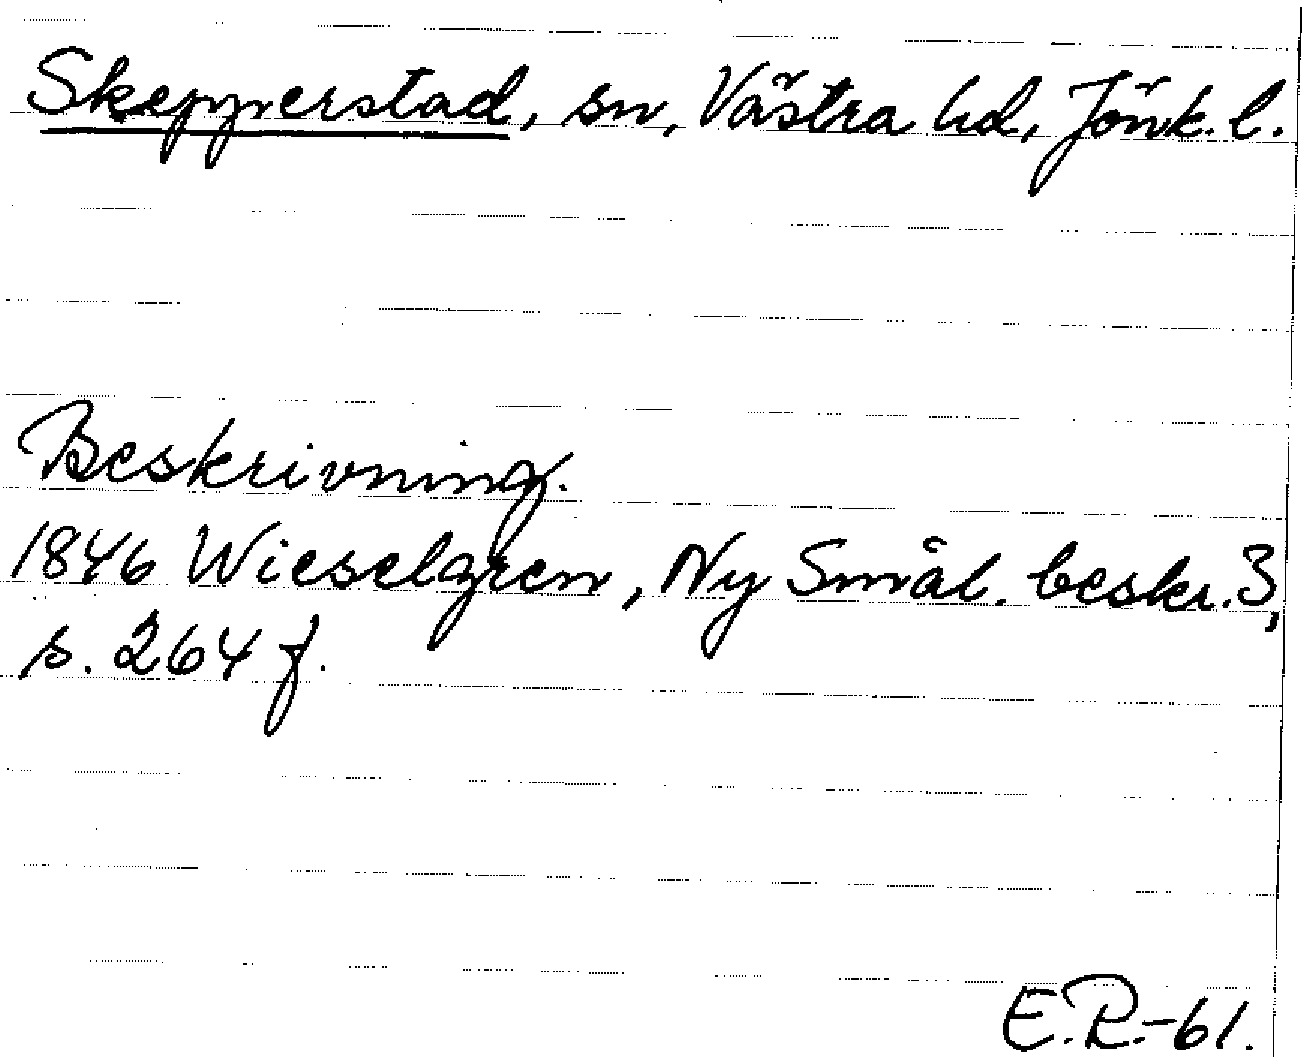 Skepperstad, sn, Västra hd, Jönk. l.
Beskrivning.
1846 Wieselgren, Ny Smål. beskr. 3,
s. 264 f.
E.R.-61.